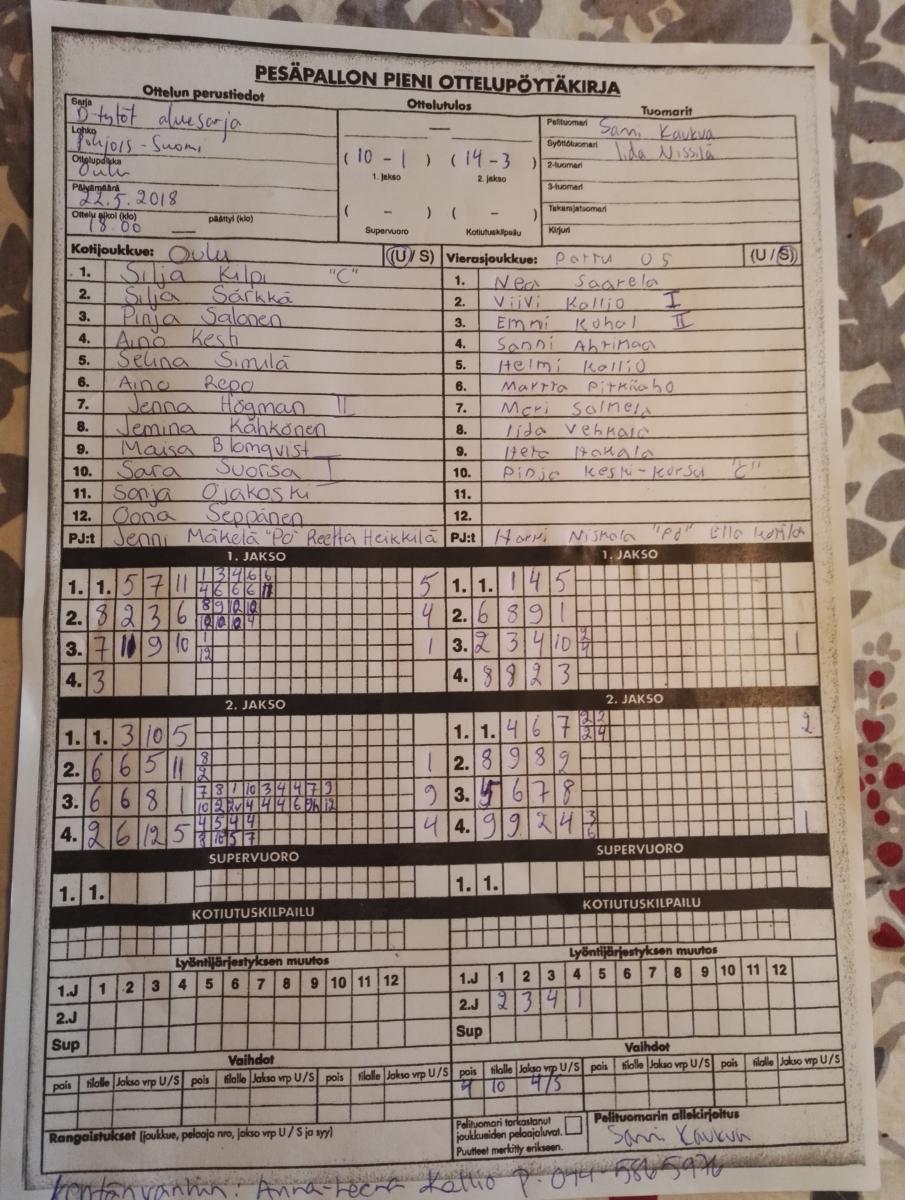 PESÄPALLON PIENI OTTELUPÖYTÄKIRJA
Ottelun perustiedot
Ottelutulos
Tuomarit
Sarja D-tytöt aluesarja
Lohko Pohjois-Suomi
Ottelupaikka Oulu
Päivämäärä 22.5.2018
Ottelu alkoi (klo) 18.00 päättyi (klo) —
—
( 10 - 1 ) ( 14 - 3 )
1. jakso 2. jakso
( - ) ( - )
Supervuoro Kotiutuskilpailu
Pelituomari Sanni Kaukua
Syöttötuomari Iida Nissilä
2-tuomari
3-tuomari
Takarajatuomari
Kirjuri
Kotijoukkue: Oulu (U / S)
1. Silja Kilpi "C"
2. Silja Särkkä
3. Pinja Salonen
4. Aino Kesti
5. Selina Simulä
6. Aino Repo
7. Jenna Högman II
8. Jemina Kähkönen
9. Maisa Blomqvist
10. Sara Suorsa I
11. Sonja Ojakoski
12. Oona Seppänen
PJ:t Jenni Mäkelä "PO" Reetta Heikkilä
Vierasjoukkue: Pattu US (U / S)
1. Nea Saarela
2. Viivi Kallio I
3. Emmi II
4. Sanni Ahrimaa
5. Helmi Kallio
6. Martta Pitkäaho
7. Meri Salmela
8. Iida
9.
10. Pinja Keski-Korsu "C"
11.
12.
PJ:t Harri Niskala "PO" Ella
1. JAKSO
1. 1. 5 7 11 5
2. 8 2 3 6 4
3. 7 11 9 10 1
4. 3
1. JAKSO
1. 1. 1 4 5
2. 6 8 9 1
3. 2 3 4 10 1
4. 8 8 2 3
2. JAKSO
1. 1. 3 10 5
2. 6 6 5 11 8 2 1
3. 6 6 8 1 9
4. 2 6 12 5 4
2. JAKSO
1. 1. 4 6 7 2 2 2 4 2
2. 8 9 8 2
3. 5 6 7 8
4. 9 9 2 4 3 6 1
SUPERVUORO
1. 1.
SUPERVUORO
1. 1.
KOTIUTUSKILPAILU
KOTIUTUSKILPAILU
Lyöntijärjestyksen muutos
1.J 1 2 3 4 5 6 7 8 9 10 11 12
2.J
Sup
Lyöntijärjestyksen muutos
1.J 1 2 3 4 5 6 7 8 9 10 11 12
2.J 2 3 4 1
Sup
Vaihdot
pois tilalle Jakso vrp U/S pois tilalle Jakso vrp U/S pois tilalle Jakso vrp U/S
Vaihdot
pois tilalle Jakso vrp U/S pois tilalle Jakso vrp U/S pois tilalle Jakso vrp U/S
4 10 4/S
Rangaistukset (joukkue, pelaaja nro, jakso vrp U / S ja syy)
Pelituomari tarkastanut
joukkueiden pelaajaluvat.
Puutteet merkitty erikseen.
Pelituomarin allekirjoitus
Sanni Kaukua
Kentänvanhin: Anna-Leena Kallio P. 044-5865976